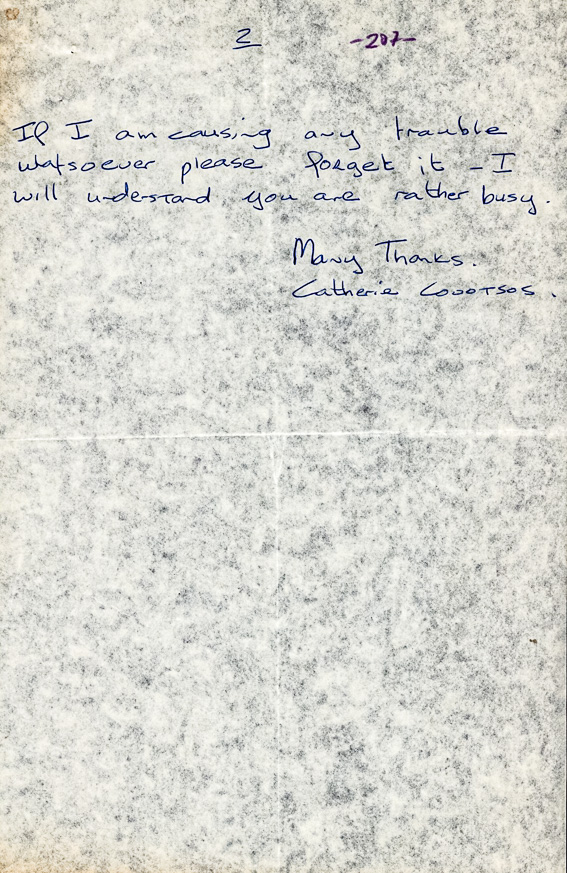 2 -207-
If I am causing any trouble
whatsoever please forget it - I
will understand you are rather busy.
Many Thanks.
Catherie